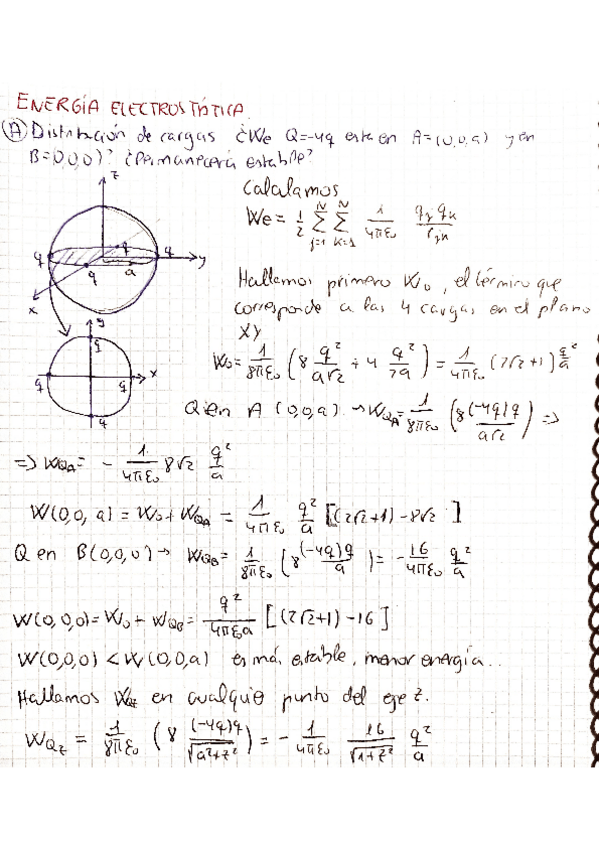 ENERGÍA ELECTROSTÁTICA
(A) Distribución de cargas ¿We Q=-4q esta en A=(0,0,a) y en
B=(0,0,0)? ¿Permanecerá estable?
z
Calculamos
We = 1/2 Σ(j=1, N) Σ(k=1, N) 1/(4πε₀) (qj qk)/(rjk)
q q q q a y
x
Hallamos primero W₀, el término que
corresponde a las 4 cargas en el plano
XY
y
q
q q x
q
W₀ = 1/(8πε₀) (8 q²/(a√2) + 4 q²/(2a)) = 1/(4πε₀) (2√2+1) q²/a
Q en A (0,0,a) → W_QA = 1/(8πε₀) (8(-4q)q/(a√2)) =>
=> W_QA = - 1/(4πε₀) 8√2 q²/a
W(0,0,a) = W₀ + W_QA = 1/(4πε₀) q²/a [(2√2+1) - 8√2]
Q en B(0,0,0) → W_QB = 1/(8πε₀) (8 (-4q)q/a) = - 16/(4πε₀) q²/a
W(0,0,0) = W₀ + W_QB = q²/(4πε₀a) [(2√2+1) - 16]
W(0,0,0) < W(0,0,a) es más estable, menor energía..
Hallamos W_QZ en cualquier punto del eje z.
W_QZ = 1/(8πε₀) (8 (-4q)q/√(a²+z²)) = - 1/(4πε₀) 16/√(1+z²) q²/a